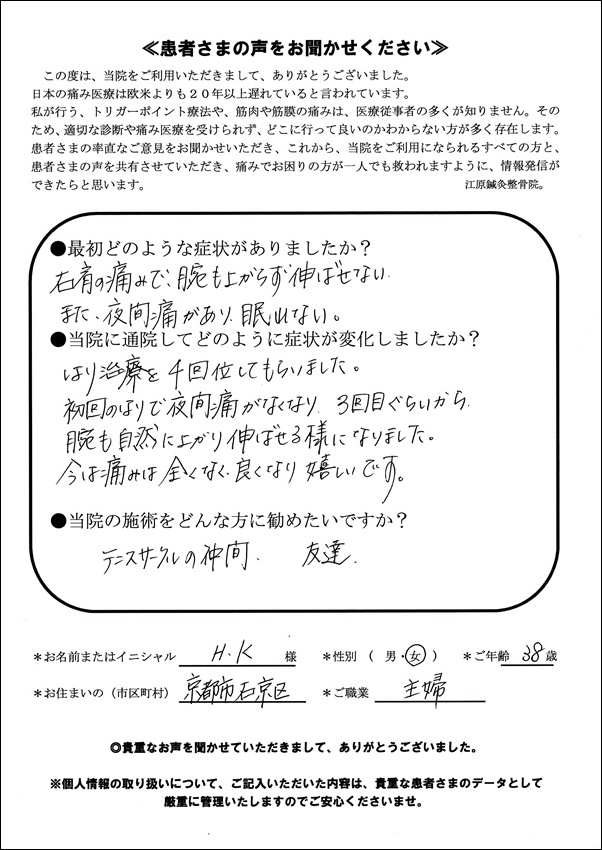 ≪患者さまの声をお聞かせください≫
この度は、当院をご利用いただきまして、ありがとうございました。
日本の痛み医療は欧米よりも２０年以上遅れていると言われています。
私が行う、トリガーポイント療法や、筋肉や筋膜の痛みは、医療従事者の多くが知りません。その
ため、適切な診断や痛み医療を受けられず、どこに行って良いのかわからない方が多く存在します。
患者さまの率直なご意見をお聞かせいただき、これから、当院をご利用になられるすべての方と、
患者さまの声を共有させていただき、痛みでお困りの方が一人でも救われますように、情報発信が
できたらと思います。 江原鍼灸整骨院。
●最初どのような症状がありましたか？
右肩の痛みで、腕も上がらず伸ばせない
また、夜間痛があり、眠れない。
●当院に通院してどのように症状が変化しましたか？
はり治療を4回位してもらいました。
初回のはりで夜間痛がなくなり、3回目ぐらいから、
腕も自然に上がり伸ばせる様になりました。
今は痛みは全くなく、良くなり嬉しいです。
●当院の施術をどんな方に勧めたいですか？
テニスサークルの仲間、 友達、
＊お名前またはイニシャル H.K 様 ＊性別（ 男・女 ） ＊ご年齢 38 歳
＊お住まいの（市区町村） 京都市右京区 ＊ご職業 主婦
◎貴重なお声を聞かせていただきまして、ありがとうございました。
※個人情報の取り扱いについて、ご記入いただいた内容は、貴重な患者さまのデータとして
厳重に管理いたしますのでご安心くださいませ。